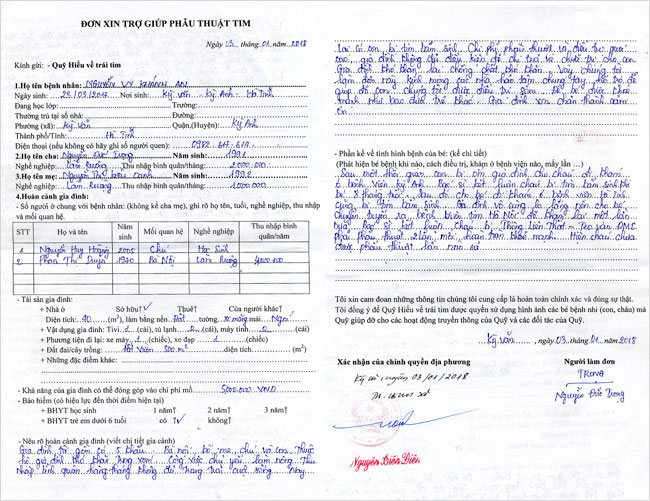 ĐƠN XIN TRỢ GIÚP PHẪU THUẬT TIM
Ngày 03 tháng 01 năm 2018
Kính gửi: - Quỹ Hiểu về trái tim
1.Họ tên bệnh nhân: NGUYỄN VY KHÁNH AN
Ngày sinh: Nơi sinh: Kỳ Văn - Kỳ Anh - Hà Tĩnh
Đang học lớp: Trường:
Thường trú tại số nhà: Đường:
Phường (xã): Kỳ Văn Quận,(Huyện): Kỳ Anh
Thành phố/Tỉnh: Hà Tĩnh
Điện thoại (nếu không có hãy ghi số người quen):
2.Họ tên cha: Nguyễn Đức Trọng Năm sinh:
Nghề nghiệp: Làm Ruộng Thu nhập bình quân/tháng: 2.000.000
3.Họ tên mẹ: Năm sinh:
Nghề nghiệp: Làm Ruộng Thu nhập bình quân/tháng: 1.000.000
4.Hoàn cảnh gia đình:
- Số người ở chung với bệnh nhân: (không kể cha mẹ), ghi rõ họ tên, tuổi, nghề nghiệp, thu nhập
và mối quan hệ.
STT Họ và tên Năm sinh Mối quan hệ Nghề nghiệp Thu nhập bình quân/năm
1 Nguyễn Huy Hoàng 2005 Chú Học Sinh
2 Phan Thị Duyên 1970 Bà Nội Làm Ruộng
- Tài sản gia đình:
+ Nhà ở Sở hữu? √ Thuê? Của người khác?
Diện tích: 40 (m²), làm bằng nền Đất tường xi măng mái Ngói
+ Vật dụng gia đình: Tivi 1 (cái), tủ lạnh (cái), máy tính (cái)
+ Phương tiện đi lại: xe máy 1 (chiếc), xe đạp 1 (chiếc)
+ Đất đai/cây trồng: Đất Vườn 500 m² diện tích (m²)
+ Những đặc điểm khác:
- Khả năng của gia đình có thể đóng góp vào chi phí mổ 5,000,000 VND
- Bảo hiểm (có hiệu lực đến thời điểm hiện tại)
+ BHYT học sinh 1 năm? 2 năm? 3 năm?
+ BHYT trẻ em dưới 6 tuổi có ?√ không?
- Nêu rõ hoàn cảnh gia đình (viết chi tiết gia cảnh)
Gia đình tôi gồm có 5 khẩu. Bà nội, bố mẹ, chú và con. Thuộc
hộ gia đình khó khăn trong vùng. Công việc chủ yếu làm nông. Thu
nhập bình quân hàng tháng không đủ trang trải cuộc sống. Nay
Lại có con bị tim bẩm sinh. Chi phí phẫu thuật và điều trị quá
cao, gia đình không đủ điều kiện để chi trả và chữa trị cho con.
Gia đình khó khăn lại chồng chất khó khăn. Vậy chúng tôi
làm đơn này kính mong các nhà hảo tâm chung tay hỗ trợ để
giúp đỡ con chúng tôi được điều trị sớm. Để bé được khoẻ
mạnh như bao đứa trẻ khác. Gia đình xin chân thành cảm
ơn
- Phần kể về tình hình bệnh của bé: (kể chi tiết)
(Phát hiện bệnh khi nào, cách điều trị, khám ở bệnh viện nào, mấy lần ...)
Sau một thời gian con bị ốm gia đình cho cháu đi khám
ở bệnh viện kỳ anh, bác sĩ kết luận cháu bị tim bẩm sinh
8 tháng sau cho bé đi khám ở bệnh viện Hà Tĩnh
cũng bị tim bẩm sinh. Gia đình vô cùng lo lắng nên cho bé
chuyển tuyến ra bệnh viện tim Hà Nội để khám lại một lần
nữa, bác sĩ kết luận cháu bị Thông Liên Thất
phải phẫu thuật 2 lần mới hoàn toàn khoẻ mạnh. Hiện cháu chưa
được phẫu thuật lần nào cả.
Tôi xin cam đoan những thông tin chúng tôi cung cấp là hoàn toàn chính xác và đúng sự thật.
Tôi đồng ý để Quỹ Hiểu về trái tim được quyền sử dụng hình ảnh các bé bệnh nhi (con, cháu) mà
Quỹ giúp đỡ cho các hoạt động truyền thông của Quỹ và các đối tác của Quỹ.
Kỳ Văn, ngày 03 tháng 01 năm 2018
Xác nhận của chính quyền địa phương Người làm đơn
ngày 03/01/2018 TRỌNG
Nguyễn Đức Trọng
Nguyễn Tiến Điển